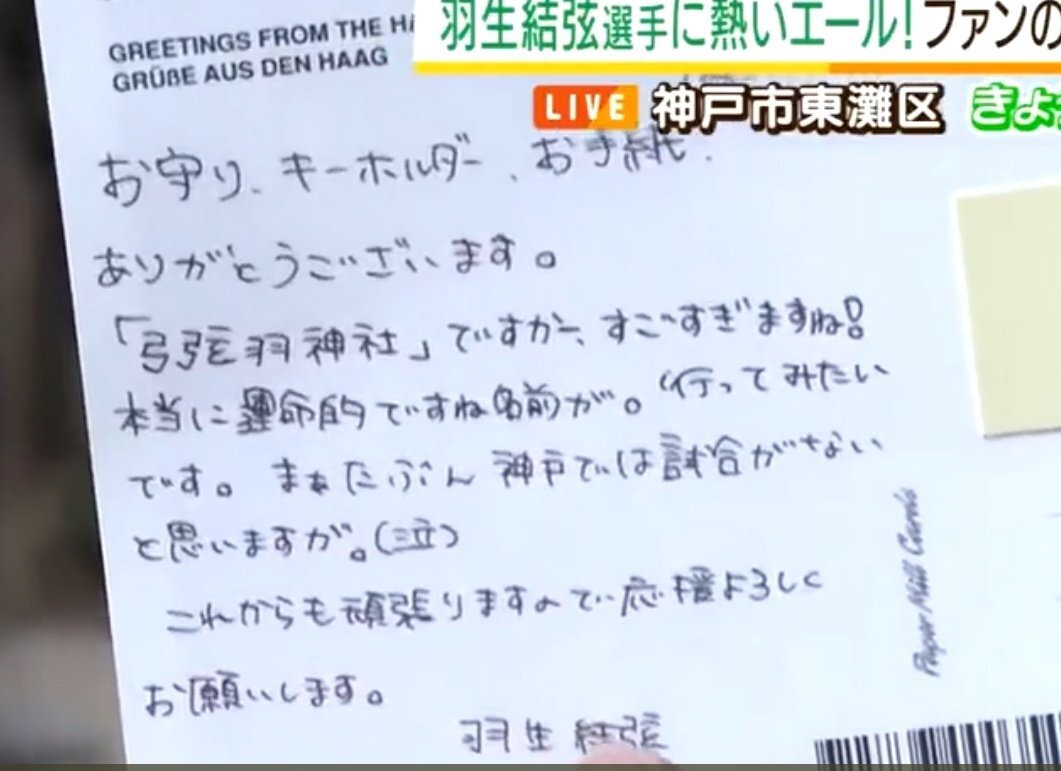 GREETINGS FROM THE HA
GRÜßE AUS DEN HAAG
羽生結弦選手に熱いエール!ファンの
LIVE 神戸市東灘区 きょ
お守り、キーホルダー、お手紙、
ありがとうございます。
「弓弦羽神社」ですか、すごすぎますね!
本当に運命的ですね名前が。行ってみたい
です。まぁたぶん神戸では試合がない
と思いますが。(泣)
これからも頑張りますので応援よろしく
お願いします。
羽生結弦
Paper Mill Cards